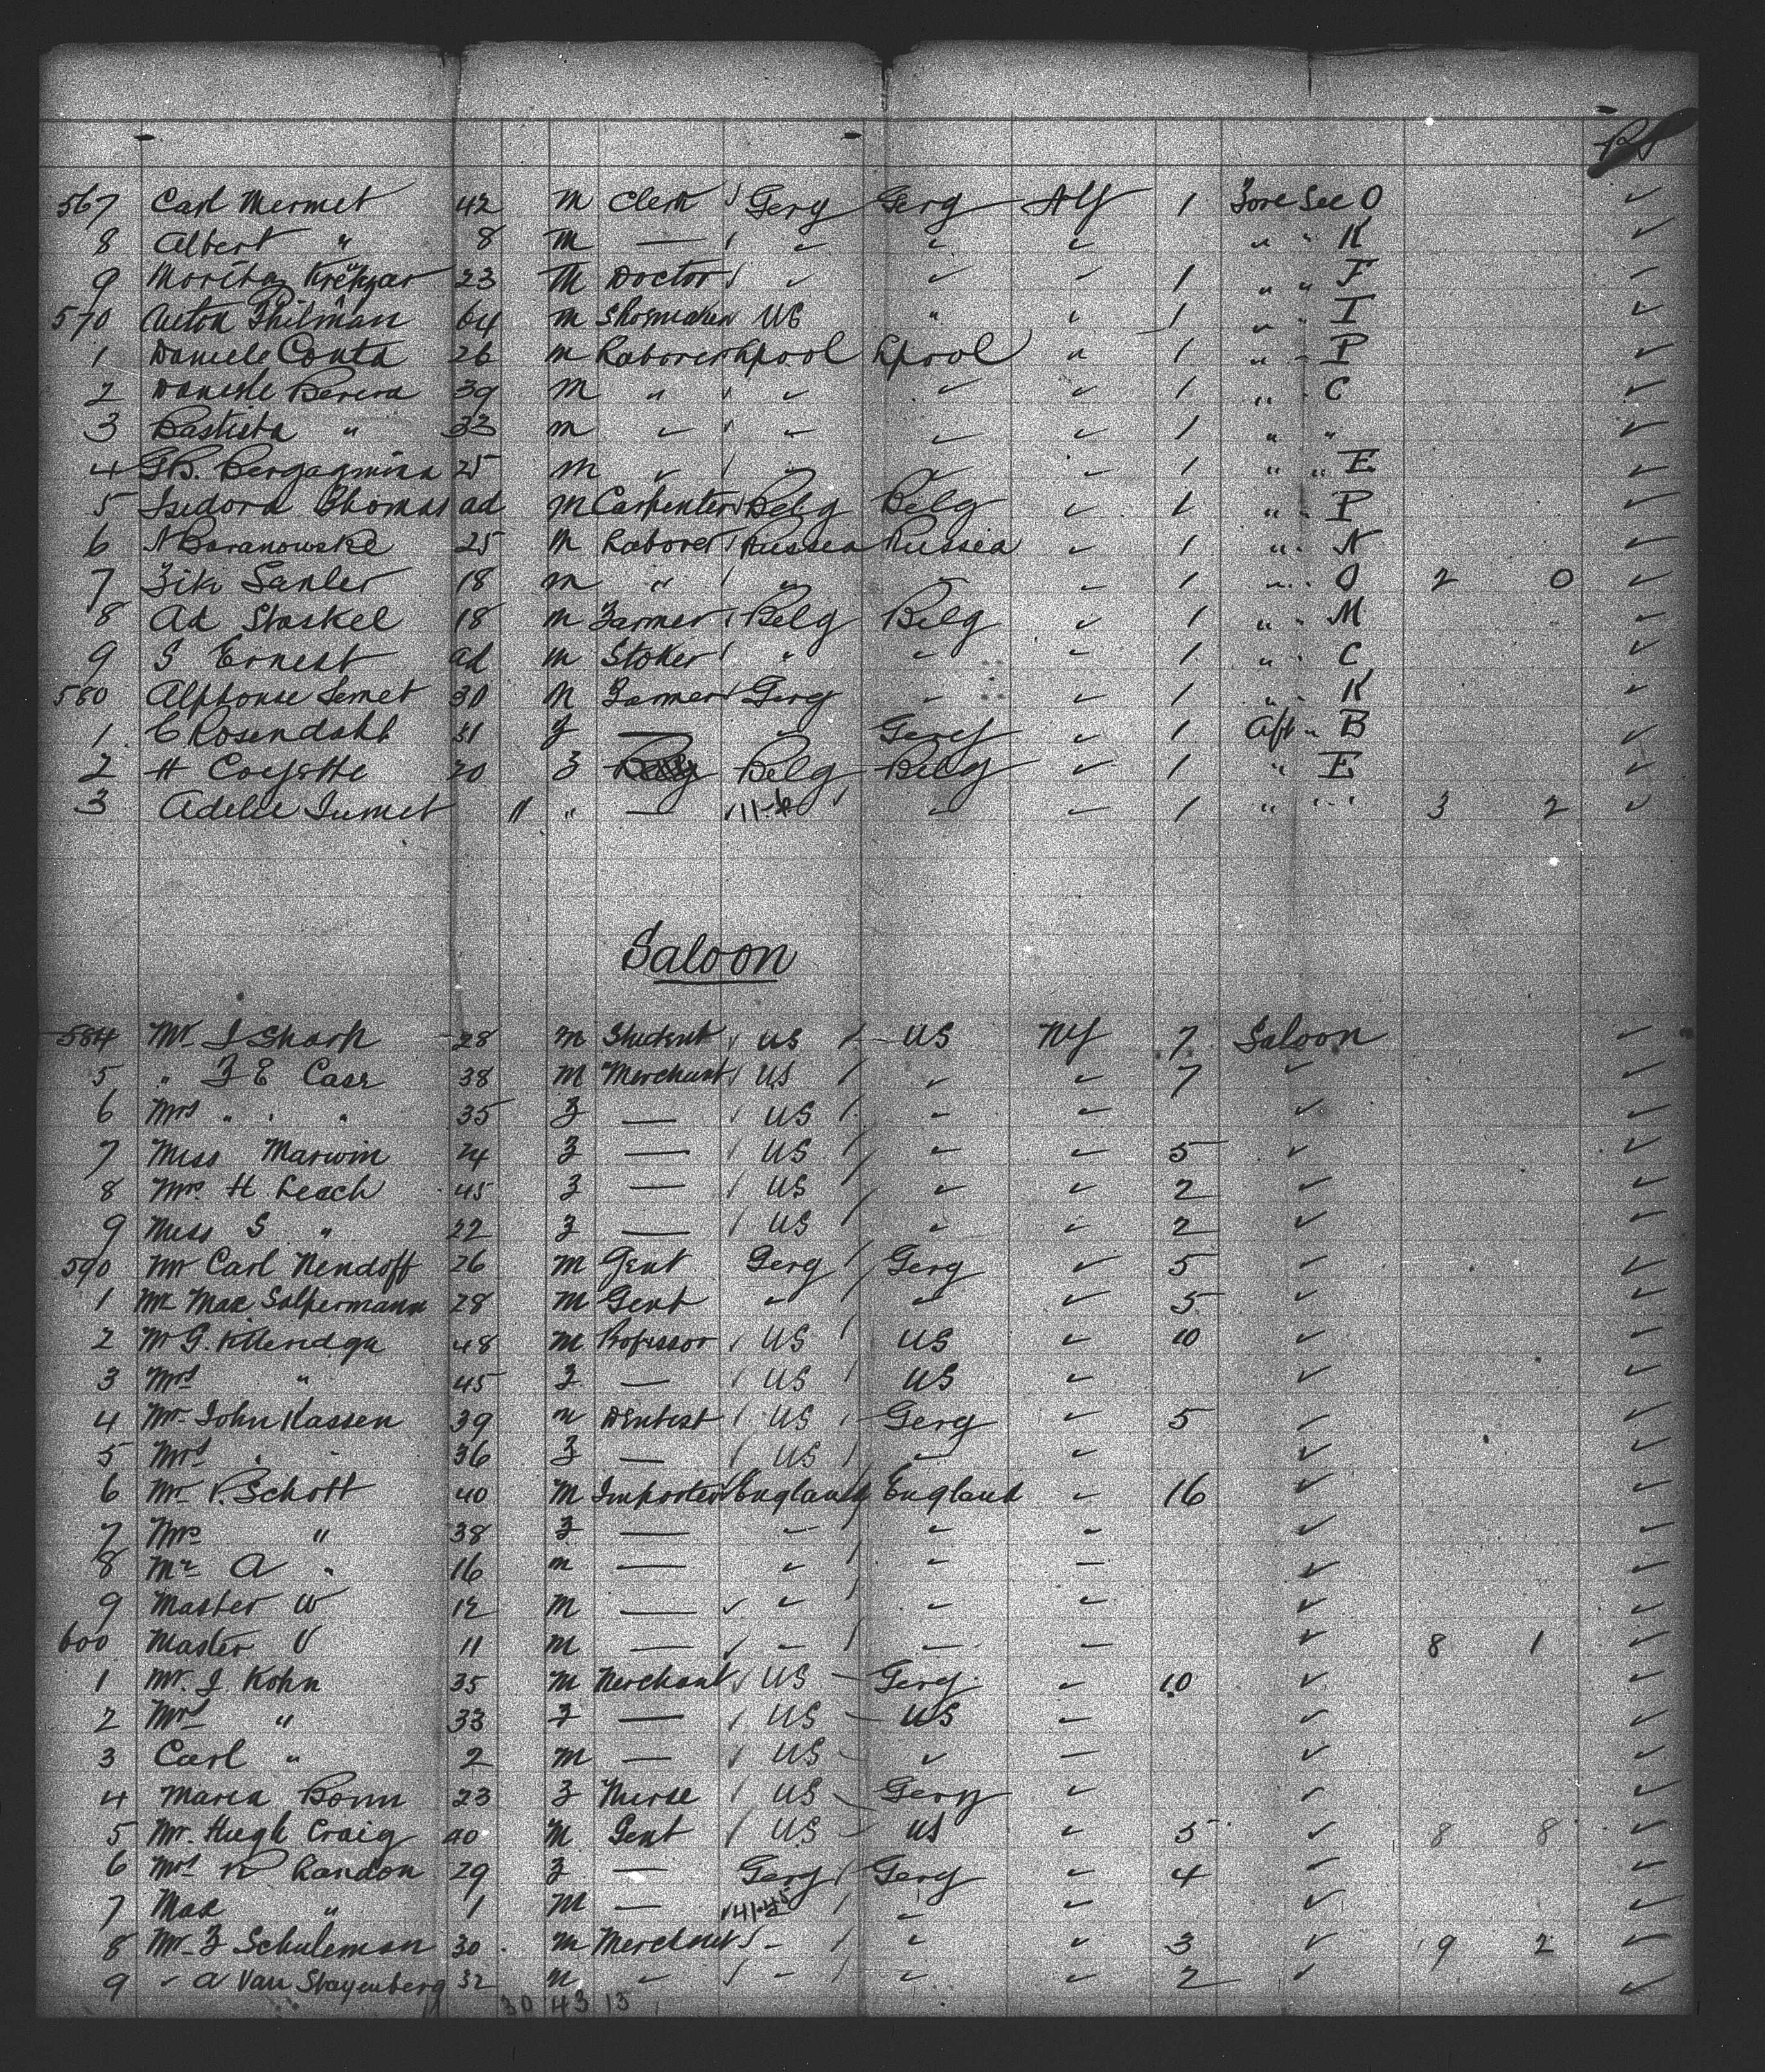 567 Carl Mermet 42 M Clerk Gery Gery NY 1 Fore Sec O ✓
8 Albert " 8 M — ✓ ✓ ✓ " " K ✓
9 23 M Doctor ✓ ✓ ✓ 1 " " F ✓
570 Anton 64 m Shoemaker US " ✓ 1 " " I ✓
1 Daniele Conta 26 m Laborer Lpool Lpool " 1 " " P ✓
2 Daniele Berera 39 M " ✓ ✓ ✓ 1 " " C ✓
3 Bastista " 33 m ✓ ✓ ✓ ✓ 1 " " ✓
4 GB. Bergagmina 25 m ✓ ✓ ✓ ✓ 1 " " E ✓
5 Isidora Thomas ad M Carpenter Belg Belg ✓ 1 " " P ✓
6 N Baranowske 25 M Laborer Russea Russea ✓ 1 " " N ✓
7 Fiki Sanler 18 m " " ✓ ✓ 1 " " O 2 0 ✓
8 Ad Staskel 18 m Farmer Belg Belg ✓ 1 " " M ✓
9 S Ernest ad m Stoker " ✓ ✓ 1 " " C ✓
580 Alphonse Semet 30 M Farmer Gery ✓ ✓ 1 " " K ✓
1 C Rosendahl 31 F — ✓ Gery ✓ 1 Aft " B ✓
2 H 20 F Belg Belg ✓ 1 " E ✓
3 Adele Jumet 11 " — 11-6 ✓ ✓ 1 " " 3 2 ✓
Saloon
584 Mr J Shark 28 m Student US US NY 7 Saloon ✓
5 " F E Case 38 M Merchant US ✓ ✓ 7 ✓ ✓
6 Mrs " " " 35 F — US ✓ ✓ ✓ ✓
7 Miss Marwin 24 F — US ✓ ✓ 5 ✓ ✓
8 Mrs H Leach 45 F — US ✓ ✓ 2 ✓ ✓
9 Miss S " 22 F — US ✓ ✓ 2 ✓ ✓
590 Mr Carl Nendoff 26 M Gent Gerg Gerg ✓ 5 ✓ ✓
1 Mr Max Salpermann 28 M Gent ✓ ✓ ✓ 5 ✓ ✓
2 Mr G. 48 M Professor US US ✓ 10 ✓ ✓
3 Mrs " 45 F — US US ✓ ✓ ✓
4 Mr John Kassen 39 m Dentist US Gerg ✓ 5 ✓ ✓
5 Mrs " " 36 F — US ✓ ✓ ✓ ✓
6 Mr P. Schott 40 M Importer England England ✓ 16 ✓ ✓
7 Mrs " 38 F — ✓ ✓ ✓ ✓ ✓
8 Mr A " 16 m — ✓ ✓ — ✓ ✓
9 Master W 12 M — ✓ ✓ ✓ ✓ ✓
600 Master V 11 m — ✓ — — ✓ 8 1 ✓
1 Mr. J. Kohn 35 M Merchant US Gerg ✓ 10 ✓ ✓
2 Mrs " 33 F — US US — ✓ ✓
3 Carl " 2 m — US ✓ — ✓ ✓
4 Maria Bonn 23 F Nurse US Gery ✓ ✓ ✓
5 Mr. Hugh Craig 40 M Gent US US ✓ 5 ✓ 8 8 ✓
6 Mrs R Landon 29 F — Gerg Gerg ✓ 4 ✓ ✓
7 Max " 1 M — ✓ ✓ ✓ ✓
8 Mr F Schuleman 30 m Merchant — ✓ ✓ 3 ✓ 9 2 ✓
9 " A Van 32 m ✓ — ✓ ✓ 2 ✓ ✓
30 43 13